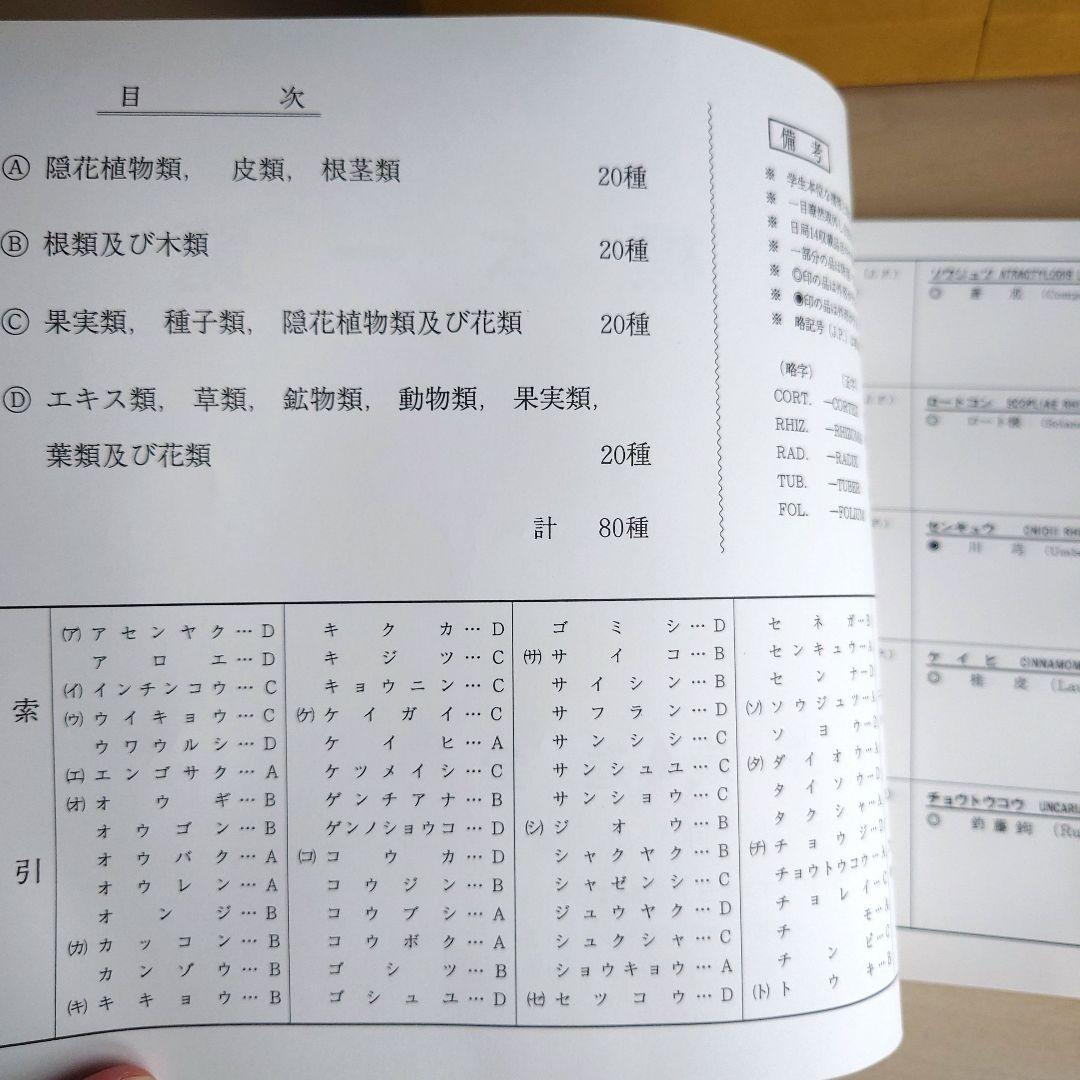 目 次
Ⓐ 隠花植物類, 皮類, 根茎類 20種
Ⓑ 根類及び木類 20種
Ⓒ 果実類, 種子類, 隠花植物類及び花類 20種
Ⓓ エキス類, 草類, 鉱物類, 動物類, 果実類,
葉類及び花類 20種
計 80種
備考
※ 学生本位な
※ 一目瞭然
※ 日局14収載
※ 一部分の品は
※ ◎印の品は
※ ◉印の品は
※ 略記号 (J.P.)
(略字)
CORT. —CORTEX
RHIZ. —RHIZOMA
RAD. —RADIX
TUB. —TUBER
FOL. —FOLIUM
索引
(ア) アセンヤク… D
アロエ… D
(イ) インチンコウ… C
(ウ) ウイキョウ… C
ウワウルシ… D
(エ) エンゴサク… A
(オ) オウギ… B
オウゴン… B
オウバク… A
オウレン… A
オンジ… B
(カ) カッコン… B
カンゾウ… B
(キ) キキョウ… B
キクカ… D
キジツ… C
キョウニン… C
(ケ) ケイガイ… C
ケイヒ… A
ケツメイシ… C
ゲンチアナ… B
ゲンノショウコ… D
(コ) コウカ… D
コウジン… B
コウブシ… A
コウボク… A
ゴシツ… B
ゴシュユ… D
ゴミシ… D
(サ) サイコ… B
サイシン… B
サフラン… D
サンシシ… C
サンシュユ… C
サンショウ… C
(シ) ジオウ… B
シャクヤク… B
シャゼンシ… C
ジュウヤク… D
シュクシャ… C
ショウキョウ… A
(セ) セツコウ… D
セネガ… B
センキュウ… A
センナ… D
(ソ) ソウジュツ… A
ソヨウ… D
(タ) ダイオウ… A
タイソウ… D
タクシャ… A
(チ) チョウジ… D
チョウトウコウ… A
チョレイ… C
チモ… A
チンピ… C
(ト) トウキ… B
ソウジュツ ATRACTYLODIS
◎
ロートコン SCOPLIAE RH
◎ ロート根
センキュウ CNIDII RH
◉ 川芎 (Umbe
ケイヒ CINNAMOM
◎ 桂皮 (Lau
チョウトウコウ UNCARI
◎ 釣藤鈎 (Ru